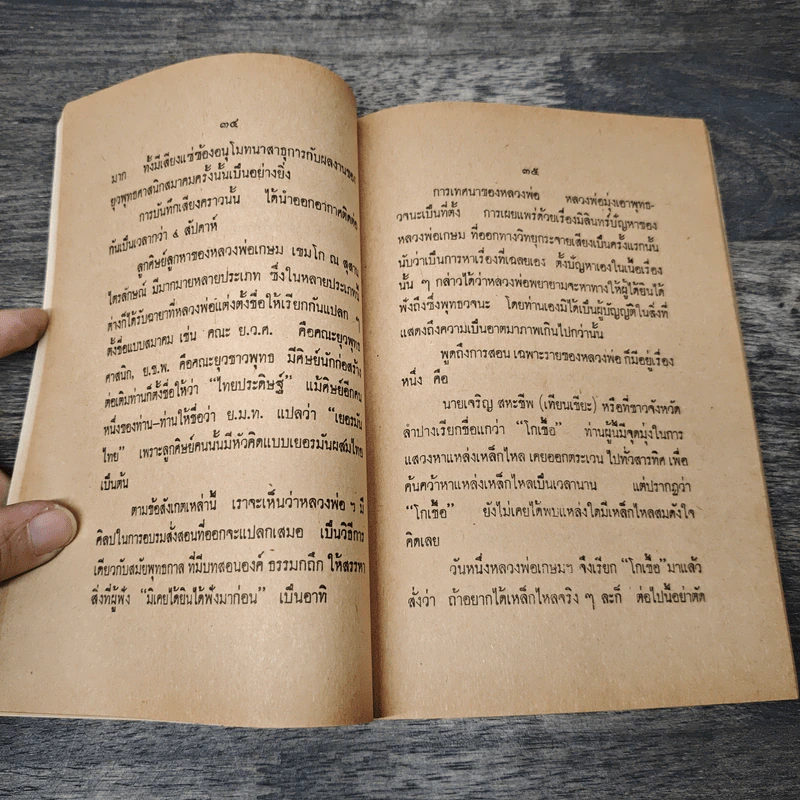 ๓๔
มาก ทั้งมีเสียงแซ่ซ้องอนุโมทนาสาธุการกับผลงานของ
ยุวพุทธศาสนิกสมาคมครั้งนั้นเป็นอย่างยิ่ง
การบันทึกเสียงคราวนั้น ได้นำออกอากาศติดต่อ
กันเป็นเวลากว่า ๔ สัปดาห์
ลูกศิษย์ลูกหาของหลวงพ่อเกษม เขมโก ณ สุสาน
ไตรลักษณ์ มีมากมายหลายประเภท ซึ่งในหลายประเภทนี้
ต่างก็ได้รับฉายาที่หลวงพ่อแต่งตั้งชื่อให้เรียกกันแปลก ๆ
ตั้งชื่อแบบสมาคม เช่น คณะ ย.ว.ศ. คือคณะยุวพุทธ
ศาสนิก, ย.ช.พ. คือคณะยุวชาวพุทธ มีศิษย์นักก่อสร้าง
ต่อเติมท่านก็ตั้งชื่อให้ว่า “ไทยประดิษฐ์” แม้ศิษย์อีกคน
หนึ่งของท่าน–ท่านให้ชื่อว่า ย.ม.ท. แปลว่า “เยอรมัน
ไทย” เพราะลูกศิษย์คนนั้นมีหัวคิดแบบเยอรมันผสมไทย
เป็นต้น
ตามข้อสังเกตเหล่านี้ เราจะเห็นว่าหลวงพ่อ ฯ มี
ศิลปในการอบรมสั่งสอนที่ออกจะแปลกเสมอ เป็นวิธีการ
เดียวกับสมัยพุทธกาล ที่มีบทสอนองค์ ธรรมกถึก ให้สรรหา
สิ่งที่ผู้ฟัง “มิเคยได้ยินได้ฟังมาก่อน” เป็นอาทิ
๓๕
การเทศนาของหลวงพ่อ หลวงพ่อมุ่งเอาพุทธ-
วจนะเป็นที่ตั้ง การเผยแพร่ด้วยเรื่องมิลินทร์ปัญหาของ
หลวงพ่อเกษม ที่ออกทางวิทยุกระจายเสียงเป็นครั้งแรกนั้น
นับว่าเป็นการหาเรื่องที่เฉลยเอง ตั้งปัญหาเองในเนื้อเรื่อง
นั้น ๆ กล่าวได้ว่าหลวงพ่อพยายามจะหาทางให้ผู้ได้ยินได้
ฟังถึงซึ่งพุทธวจนะ โดยท่านเองมิได้เป็นผู้บัญญัติในสิ่งที่
แสดงถึงความเป็นอาตมาภาพเกินไปกว่านั้น
พูดถึงการสอน เฉพาะรายของหลวงพ่อ ก็มีอยู่เรื่อง
หนึ่ง คือ
นายเจริญ สหะชีพ (เทียนเชียะ) หรือที่ชาวจังหวัด
ลำปางเรียกชื่อแกว่า “โกเซื้อ” ท่านผู้นี้มีจุดมุ่งในการ
แสวงหาแหล่งเหล็กไหล เคยออกตระเวน ไปทั่วสารทิศ เพื่อ
ค้นคว้าหาแหล่งเหล็กไหลเป็นเวลานาน แต่ปรากฏว่า
“โกเซื้อ” ยังไม่เคยได้พบแหล่งใดมีเหล็กไหลสมดังใจ
คิดเลย
วันหนึ่งหลวงพ่อเกษมฯ จึงเรียก “โกเซื้อ” มาแล้ว
สั่งว่า ถ้าอยากได้เหล็กไหลจริง ๆ ละก็ ต่อไปนี้อย่าตัด